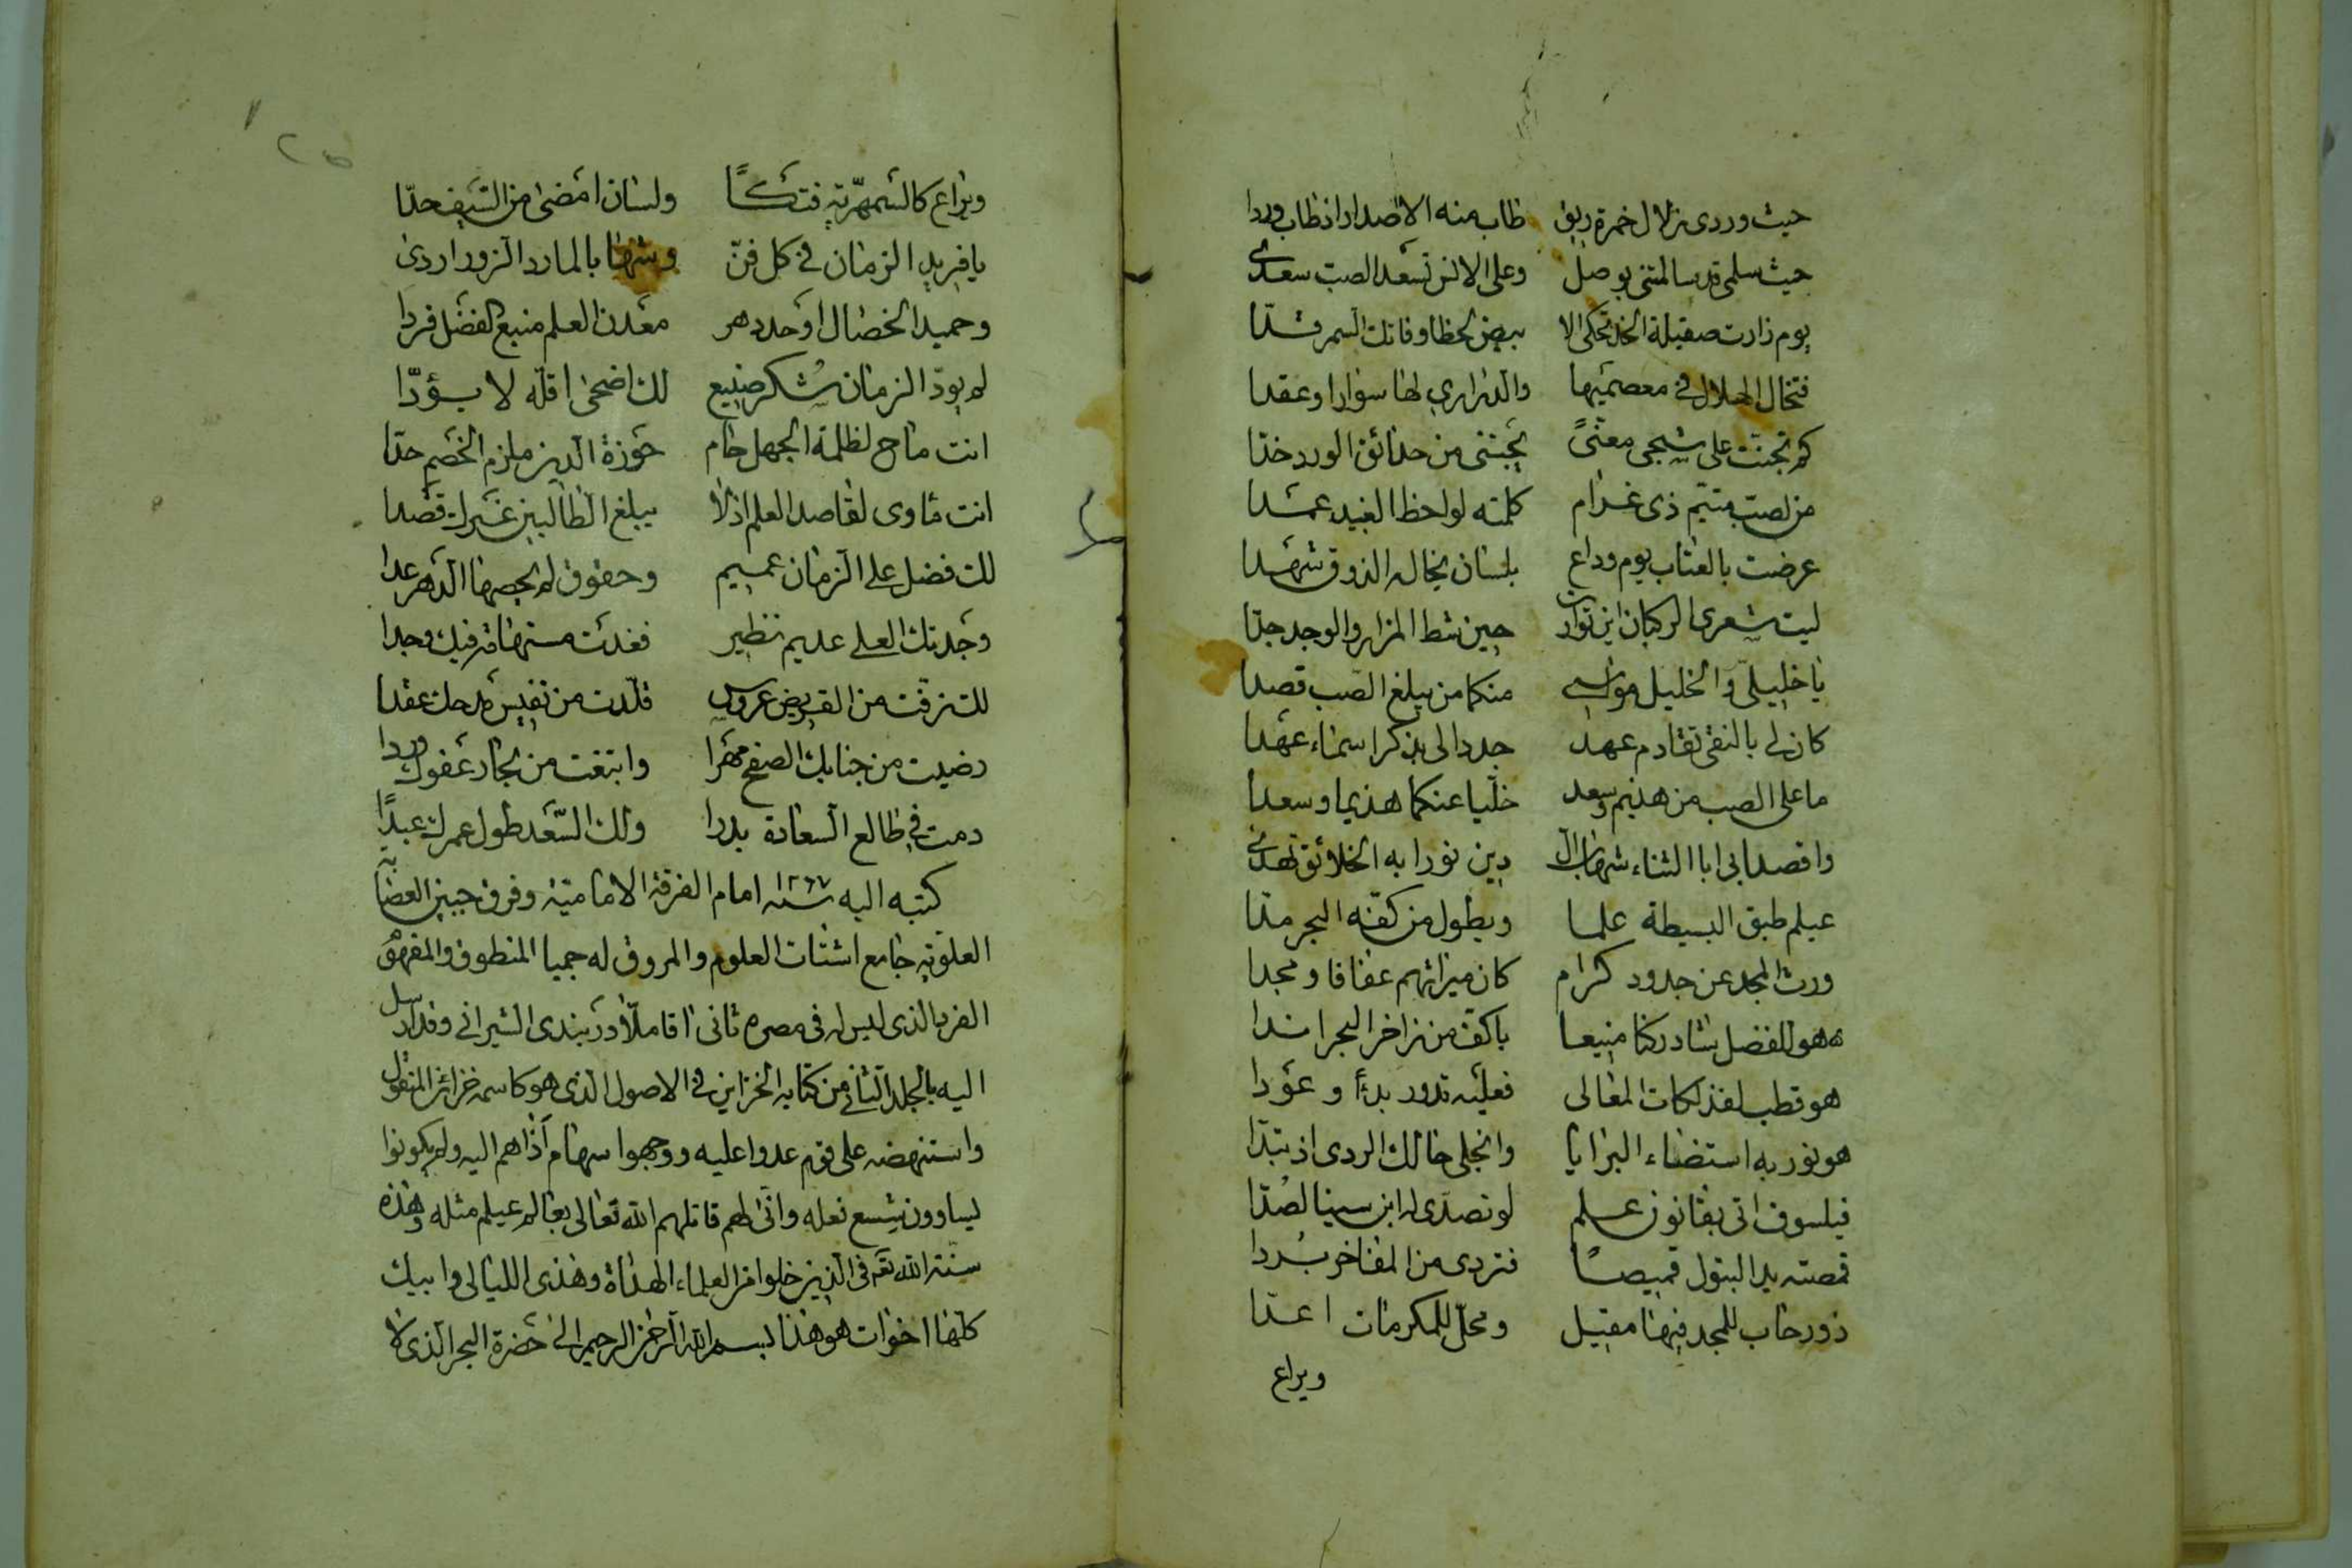 حيث وردى زلال خمرة ريق طاب منه الاصدار اذ طاب وردا
حيث سلمى قد سالمتنى بوصل وعلى الانس تسعد الصب سعدى
يوم زارت صقيلة الخد تحكى الا بيض لحظا وفاتك السمر قدّا
فتخال الهلال فى معصميها والدرارى لها سوارا وعقدا
كم تجنت على شجى معنًى يجتنى من حدائق الورد خدّا
من لصب متيم ذى غرام كلمته لواحظ الغيد عمدا
عرضت بالعتاب يوم وداع بلسان يخاله الذوق شهدا
ليت شعرى الركبان اين توارت حين شط المزار والوجد جدّا
يا خليلىّ والخليل مواسى منكما من يبلغ الصب قصدا
كان لى بالنقى تقادم عهد جددا لى بذكر اسماء عهدا
ما على الصب من هذيم وسعد خليا عنكما هذيما وسعدا
واقصدا بى ابا الثناء شهاب ال دين نورا به الخلائق تهدى
عيلم طبق البسيطة علما ويطول من كفّه البحر مدّا
ورث المجد عن جدود كرام كان ميراثهم عفافا ومجدا
هو للفضل شاد ركنا منيعا باكف من زاخر البحر اندا
هو قطب لفذلكات المعالى فعليه تدور بدأ وعودا
هو نور به استضاء البرايا وانجلى حالك الردى اذ تبدّا
فيلسوف اتى بقانون علم لو تصدّى له ابن سينا لصُدّا
قمصته يد البتول قميصًا فتردى من المفاخر بُردا
ذو رحاب للمجد فيها مقيل ومحلّ للمكرمات اعدّا
ويراع
ويراع كالسمهريّة فتكًا ولسان امضى من السيف حدّا
يا فريد الزمان فى كل فنّ وشهابا بالمارد الزور اردى
وحميد الخصال اوحد دهر معدن العلم منبع الفضل فردا
لم يودّ الزمان شكر صنيع لك اضحى اقله لا يؤدّا
انت ماح لظلمة الجهل حام حوزة الدين ملزم الخصم حدّا
انت مأوى لقاصد العلم اذ لا يبلغ الطالبين غيرك قصدا
لك فضل على الزمان عميم وحقوق لم يحصها الدهر عدا
وجدتك العلى عديم نظير فغدت مستهامة فيك وجدا
لك زفت من القريض عروس قلّدت من نفيس مدحك عقدا
رضيت من جنابك الصفح مهرا وابتغت من بحار عفوك وردا
دمت فى طالع السعادة بدرا ولك السّعد طول عمرك عبدًا
كتبه اليه سنة ١٢٦٧ امام الفرقة الامامية وفرق جبين العصابة
العلوية جامع اشتات العلوم والمروق له حميا المنطوق والمفهوم
الفرد الذى ليس له فى مصره ثانى اقا ملّا دربندى الشيرانى وقد ارسل
اليه بالجلد الثانى من كتابه الخزاين فى الاصول الذى هو كاسمه خزائن المنقول
واستنهضه على قوم عدوا عليه ووجهوا سهام أذاهم اليه ولم يكونوا
ليساوون شسع نعله وانّى لهم قاتلهم الله تعالى بعالم عيلم مثله وهذه
سنة الله تعم فى الذين خلوا من العلماء الهداة وهذى الليالى وابيك
كلها اخوات هو هذا بسم الله الرحمن الرحيم الى حضرة البحر الذى لا